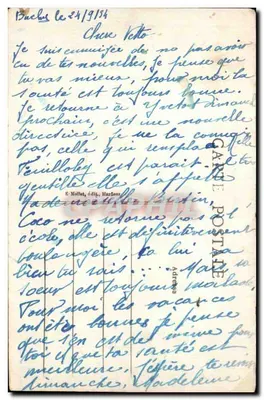 Buchy le 24/9/34
Chère Ketto
Je suis ennuyée de ne pas avoir
eu de tes nouvelles, je pense que
tu vas mieux, pour moi la
santé est toujours bonne.
Je retourne à Yvetot dimanche
prochain, c'est une nouvelle
directrice, je ne la connais
pas, celle qui remplace Melle
est parait
gentille elle s'appelle
Mademoiselle
Coco ne retourne pas à l'
école, elle est définitivement
boulangère. Ça lui va
bien tu sais... Ma
sœur est toujours malade.
Pour moi les vacances
ont été bonnes je pense
que s'en est de même pour
toi et que ta santé est
meilleure. J'espère te
dimanche, Madeleine
CARTE POSTALE
Adresse